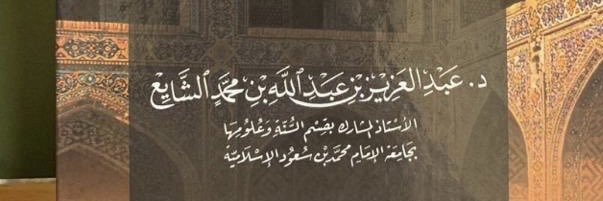 د. عَبْدِ الْعَزِيزِ بْنِ عَبْدِ اللَّهِ بْنِ مُحَمَّدٍ الشَّايِعِ
الأُسْتَاذ المشَارك بقِسْمِ السُّنَّةِ وَعُلُومِهَا
بجَامِعَة الإِمَامِ مُحَمَّد بْن سُعُود الإِسْلَاميَّة